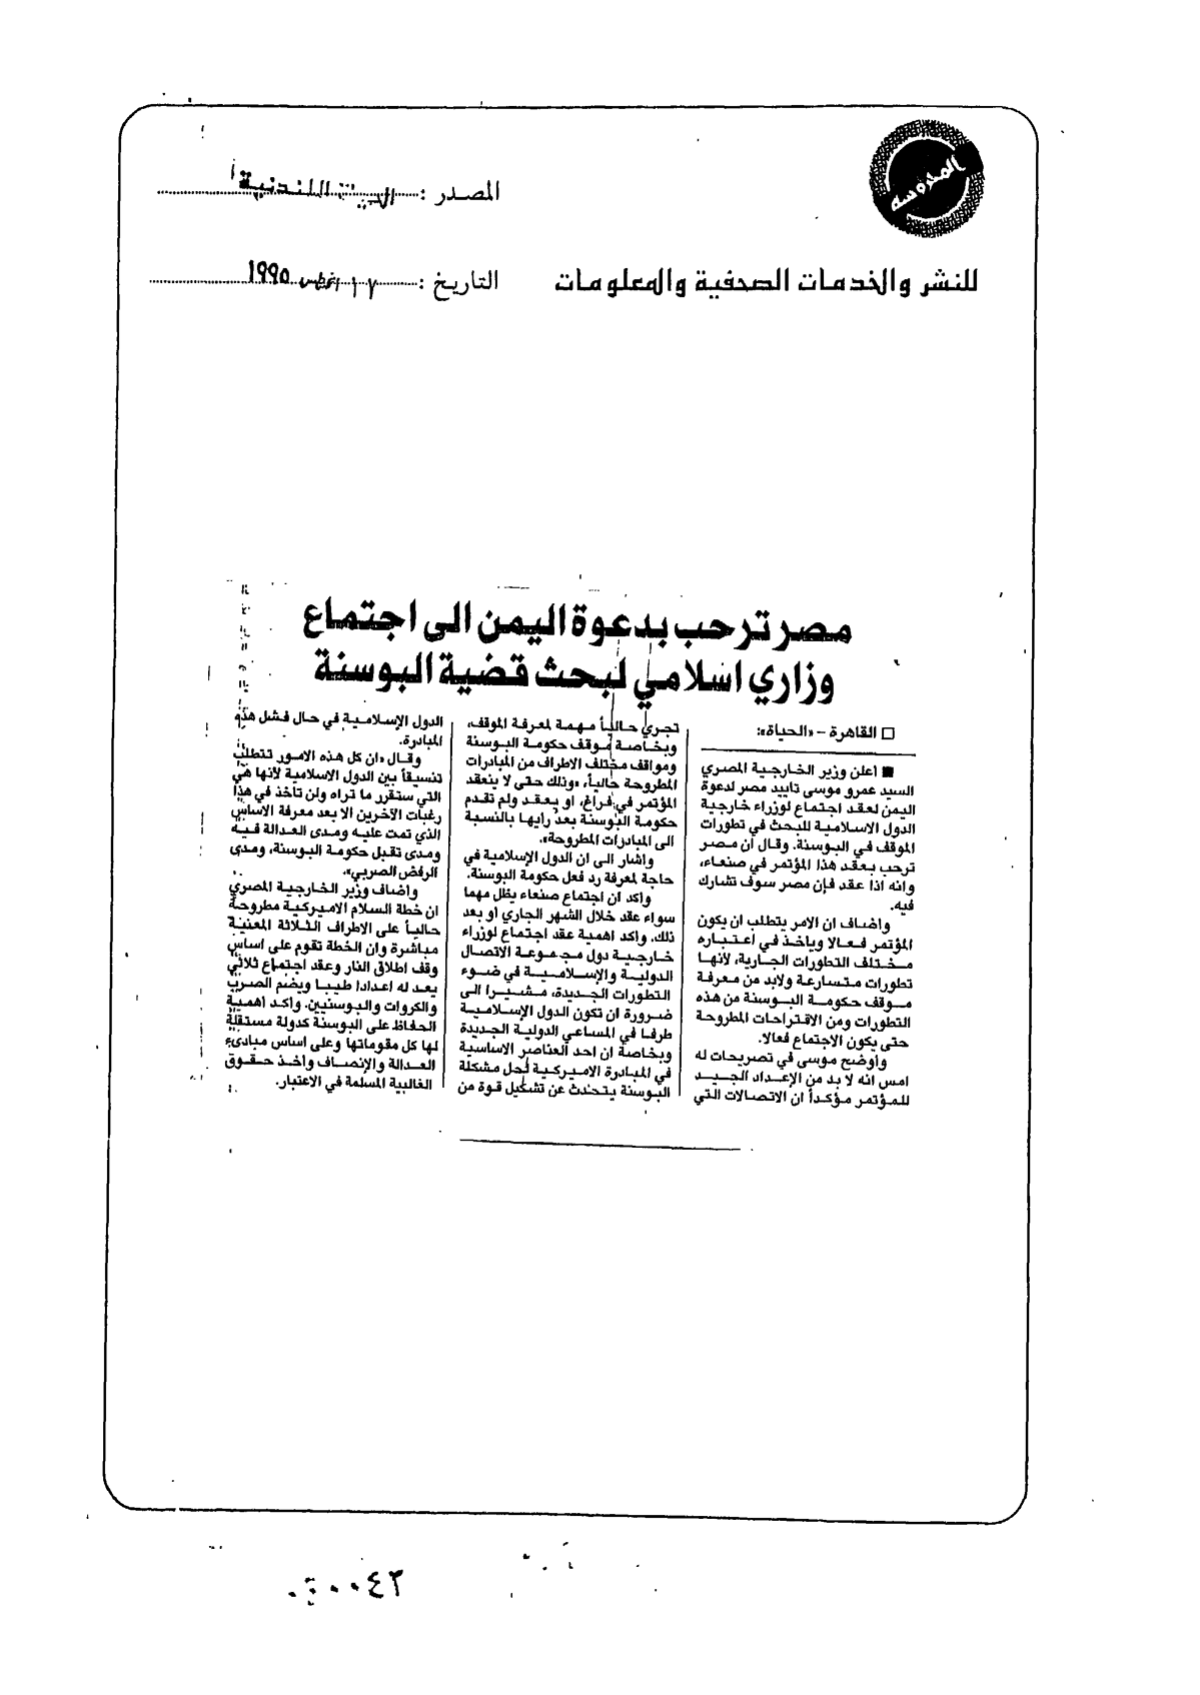 المحروسه
المصدر : الحياة اللندنية
للنشر والخدمات الصحفية والمعلومات
التاريخ : ١٧ اغسطس ١٩٩٥
مصر ترحب بدعوة اليمن الى اجتماع
وزاري اسلامي لبحث قضية البوسنة
□ القاهرة - «الحياة»:
■ اعلن وزير الخارجية المصري
السيد عمرو موسى تاييد مصر لدعوة
اليمن لعقد اجتماع لوزراء خارجية
الدول الاسلامية للبحث في تطورات
الموقف في البوسنة. وقال ان مصر
ترحب بعقد هذا المؤتمر في صنعاء،
وانه اذا عقد فإن مصر سوف تشارك
فيه.
واضاف ان الامر يتطلب ان يكون
المؤتمر فعالا وياخذ في اعتباره
مختلف التطورات الجارية، لأنها
تطورات متسارعة ولابد من معرفة
موقف حكومة البوسنة من هذه
التطورات ومن الاقتراحات المطروحة
حتى يكون الاجتماع فعالا.
واوضح موسى في تصريحات له
امس انه لا بد من الإعداد الجيد
للمؤتمر مؤكداً ان الاتصالات التي
تجري حالياً مهمة لمعرفة الموقف،
وبخاصة موقف حكومة البوسنة
ومواقف مختلف الاطراف من المبادرات
المطروحة حالياً، «وذلك حتى لا ينعقد
المؤتمر في فراغ، او يعقد ولم تقدم
حكومة البوسنة بعد رايها بالنسبة
الى المبادرات المطروحة».
واشار الى ان الدول الإسلامية في
حاجة لمعرفة رد فعل حكومة البوسنة.
واكد ان اجتماع صنعاء يظل مهما
سواء عقد خلال الشهر الجاري او بعد
ذلك. واكد اهمية عقد اجتماع لوزراء
خارجية دول مجموعة الاتصال
الدولية والإسلامية في ضوء
التطورات الجديدة، مشيرا الى
ضرورة ان تكون الدول الإسلامية
طرفا في المساعي الدولية الجديدة
وبخاصة ان احد العناصر الاساسية
في المبادرة الاميركية لحل مشكلة
البوسنة يتحدث عن تشكيل قوة من
الدول الإسلامية في حال فشل هذه
المبادرة.
وقال «ان كل هذه الامور تتطلب
تنسيقاً بين الدول الاسلامية لأنها هي
التي ستقرر ما تراه ولن تاخذ في هذا
رغبات الآخرين الا بعد معرفة الاساس
الذي تمت عليه ومدى العدالة فيه
ومدى تقبل حكومة البوسنة، ومدى
الرفض الصربي».
واضاف وزير الخارجية المصري
ان خطة السلام الاميركية مطروحة
حالياً على الاطراف الثلاثة المعنية
مباشرة وان الخطة تقوم على اساس
وقف اطلاق النار وعقد اجتماع ثلاثي
يعد له اعدادا طيبا ويضم الصرب
والكروات والبوسنيين. واكد اهمية
الحفاظ على البوسنة كدولة مستقلة
لها كل مقوماتها وعلى اساس مبادىء
العدالة والإنصاف واخذ حقوق
الغالبية المسلمة في الاعتبار.